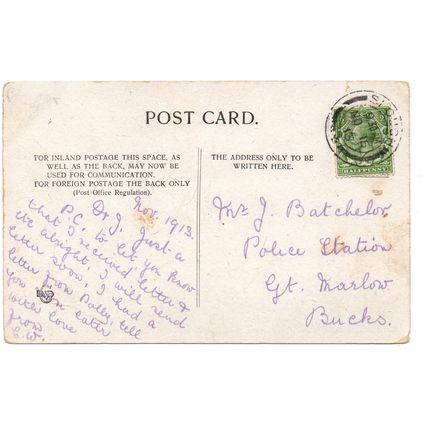 POST CARD.
FOR INLAND POSTAGE THIS SPACE, AS
WELL AS THE BACK, MAY NOW BE
USED FOR COMMUNICATION.
FOR FOREIGN POSTAGE THE BACK ONLY
(Post Office Regulation).
THE ADDRESS ONLY TO BE
WRITTEN HERE.
HALFPENNY
Nov. 1913.
Dr J. Just a
P.C. to let you know
that I received letter &
alright, I will send
letter soon, I had a
letter from Dolly, tell
you later
with love
from
E.W.
Mr J. Batchelor
Police Station
Gt. Marlow
Bucks.